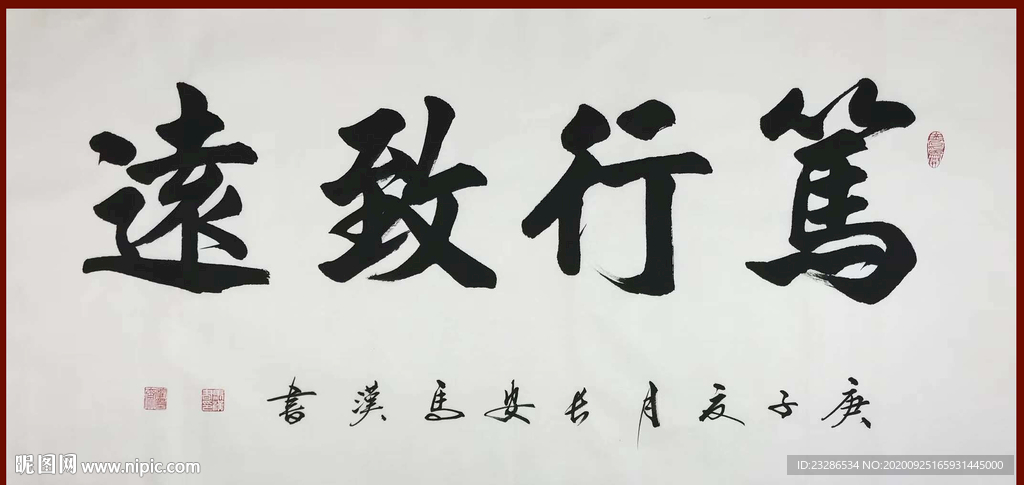 篤行致遠
庚子夏月長安馬漢書
昵图网 www.nipic.com
ID:23286534 NO:20200925165931445000